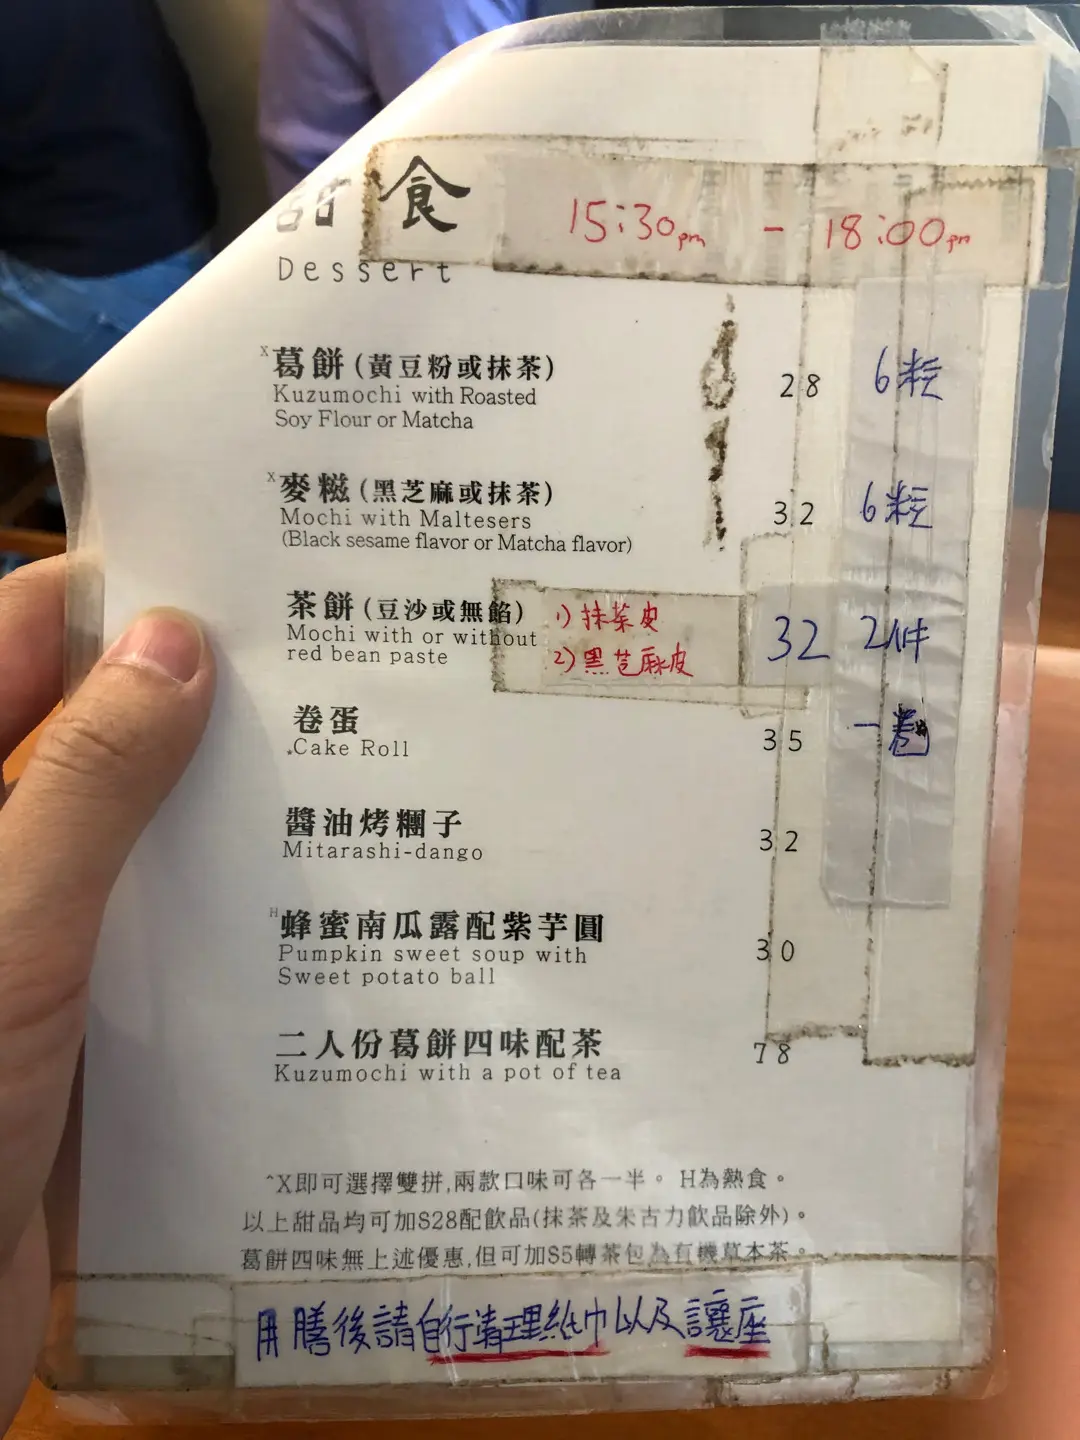 甜食 15:30pm - 18:00pm
Dessert
X葛餅(黃豆粉或抹茶) 28 6粒
Kuzumochi with Roasted
Soy Flour or Matcha
X麥糍(黑芝麻或抹茶) 32 6粒
Mochi with Maltesers
(Black sesame flavor or Matcha flavor)
茶餅(豆沙或無餡) 1)抹茶皮 32 2件
Mochi with or without
red bean paste 2)黑芝麻皮
卷蛋 35 一卷
Cake Roll
醬油烤糰子 32
Mitarashi-dango
H蜂蜜南瓜露配紫芋圓 30
Pumpkin sweet soup with
Sweet potato ball
二人份葛餅四味配茶 78
Kuzumochi with a pot of tea
^X即可選擇雙拼,兩款口味可各一半。 H為熱食。
以上甜品均可加$28配飲品(抹茶及朱古力飲品除外)。
葛餅四味無上述優惠,但可加$5轉茶包為有機草本茶。
用膳後請自行清理紙巾以及讓座